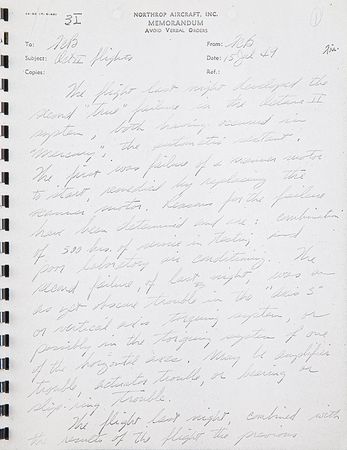 3I
1
NORTHROP AIRCRAFT, INC.
MEMORANDUM
AVOID VERBAL ORDERS
To: NCB From: NCB
Subject: Oct II flights Date: 15 Jul 49
Copies: Ref.:
The flight last night developed the
second "true" failure in the Octans II
system, both having occurred in
"Mercury", the automatic sextant.
The first was failure of a scanner motor
to start, remedied by replacing the
scanner motor. Reasons for the failure
have been determined and are: combination
of 500 hrs. of service in testing and
poor laboratory air conditioning. The
second failure, of last night, was an
as yet obscure trouble in the "axis 3"
or vertical axis torquing system, or
possibly in the torquing system of one
of the horizontal axes. May be amplifier
trouble, actuator trouble, or bearing or
slip-ring trouble.
The flight last night, combined with
the results of the flight the previous